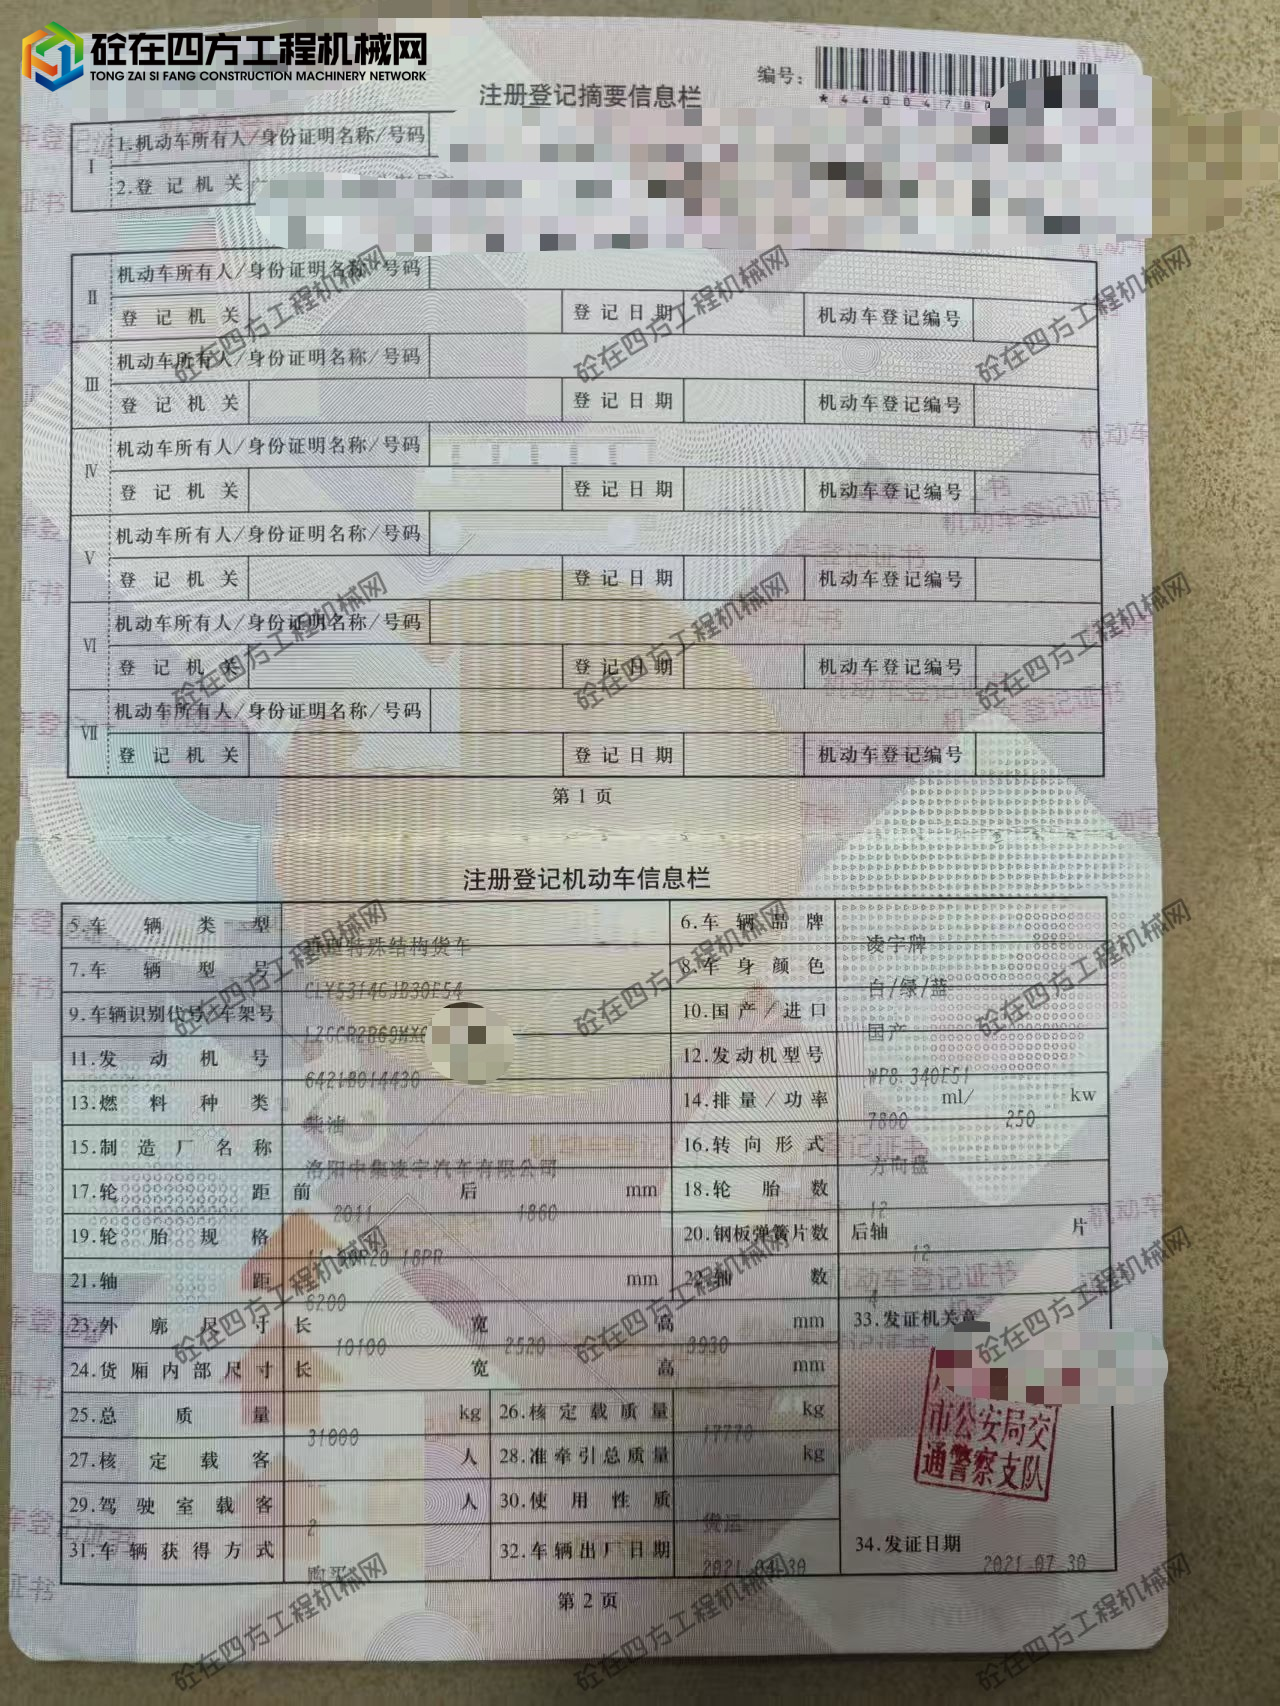 砼在四方工程机械网
TONG ZAI SI FANG CONSTRUCTION MACHINERY NETWORK
编号：
*44004700
注册登记摘要信息栏
I 1.机动车所有人/身份证明名称/号码
2.登记机关
II 机动车所有人/身份证明名称/号码
登记机关 登记日期 机动车登记编号
III 机动车所有人/身份证明名称/号码
登记机关 登记日期 机动车登记编号
IV 机动车所有人/身份证明名称/号码
登记机关 登记日期 机动车登记编号
V 机动车所有人/身份证明名称/号码
登记机关 登记日期 机动车登记编号
VI 机动车所有人/身份证明名称/号码
登记机关 登记日期 机动车登记编号
VII 机动车所有人/身份证明名称/号码
登记机关 登记日期 机动车登记编号
第 1 页
注册登记机动车信息栏
5.车辆类型 特殊结构货车 6.车辆品牌 凌宇牌
7.车辆型号 CLY5314GJB30E54 8.车身颜色 白/绿/蓝
9.车辆识别代号/车架号 10.国产/进口 国产
11.发动机号 6421B014430 12.发动机型号 WP8.340E51
13.燃料种类 柴油 14.排量/功率 7800 ml/ 250 kw
15.制造厂名称 洛阳中集凌宇汽车有限公司 16.转向形式 方向盘
17.轮距 前 2011 后 1860 mm 18.轮胎数 12
19.轮胎规格 18PR 20.钢板弹簧片数 后轴 12 片
21.轴距 6200 mm 22.轴数 4
23.外廓尺寸 长 10100 宽 2520 高 3930 mm 33.发证机关章
24.货厢内部尺寸 长 宽 高 mm
25.总质量 31000 kg 26.核定载质量 17770 kg
市公安局交
通警察支队
27.核定载客 人 28.准牵引总质量 kg
29.驾驶室载客 2 人 30.使用性质 货运
31.车辆获得方式 购买 32.车辆出厂日期 2021-04-30 34.发证日期 2021-07-30
第 2 页